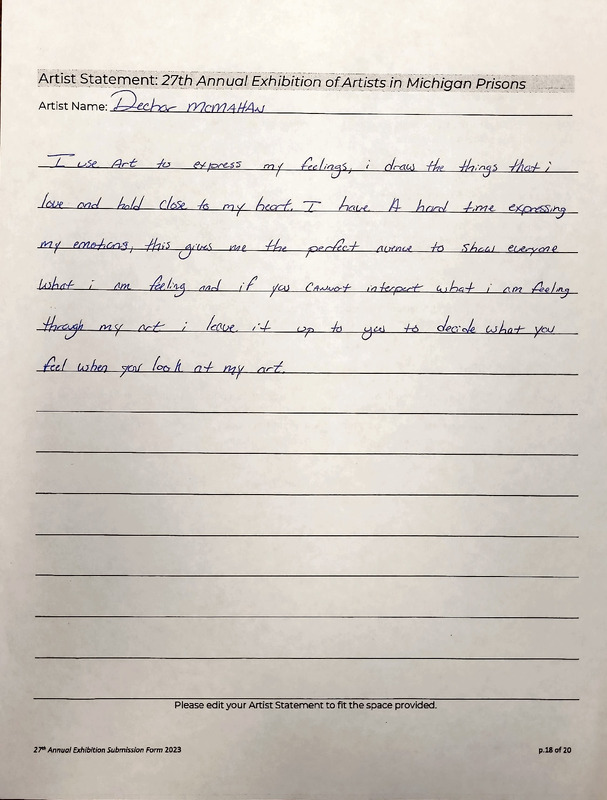 Artist Statement: 27th Annual Exhibition of Artists in Michigan Prisons
Artist Name: Dechar McMAHAN
I use Art to express my feelings, i draw the things that i
love and hold close to my heart. I have A hard time expressing
my emotions, this gives me the perfect avenue to show everyone
what i am feeling and if you cannot interpect what i am feeling
through my art i leave it up to you to decide what you
feel when you look at my art.
Please edit your Artist Statement to fit the space provided.
27th Annual Exhibition Submission Form 2023
p.18 of 20